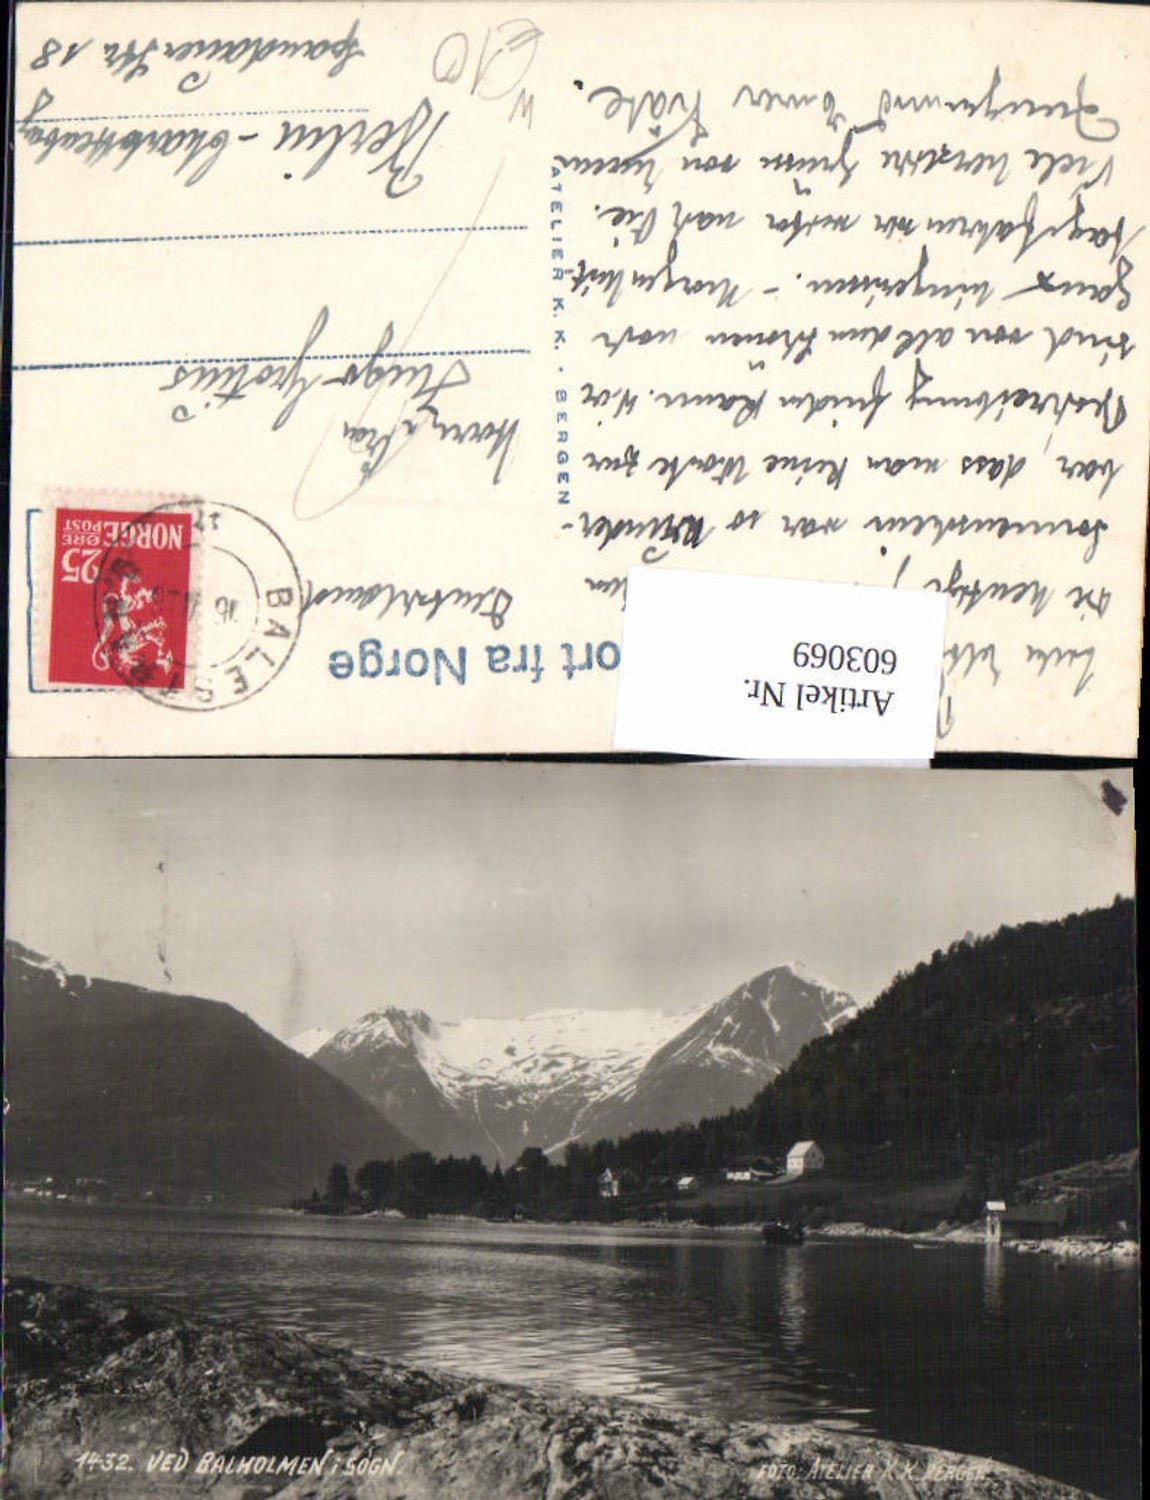 Artikel Nr.
603069
ort fra Norge
NORGE
POST
25
ØRE
BALESTR
Deutschland
Herrn Frau
Hugo Grotius
Berlin - Charlottenburg
Spandauer Str 18
ATELIER K. K. • BERGEN
Die heutige
Sonnenschein war so wunder-
bar, dass man keine Worte zur
Beschreibung finden kann. Wir
sind von all dem Schönen noch
ganz hingerissen. - Morgen Mit-
tags fahren wir weiter nach Oie.
Viele herzliche Grüsse von
Eurer Käte.
1432. VED BALHOLMEN i SOGN.
FOTO: ATELIER K.K. BERGEN.